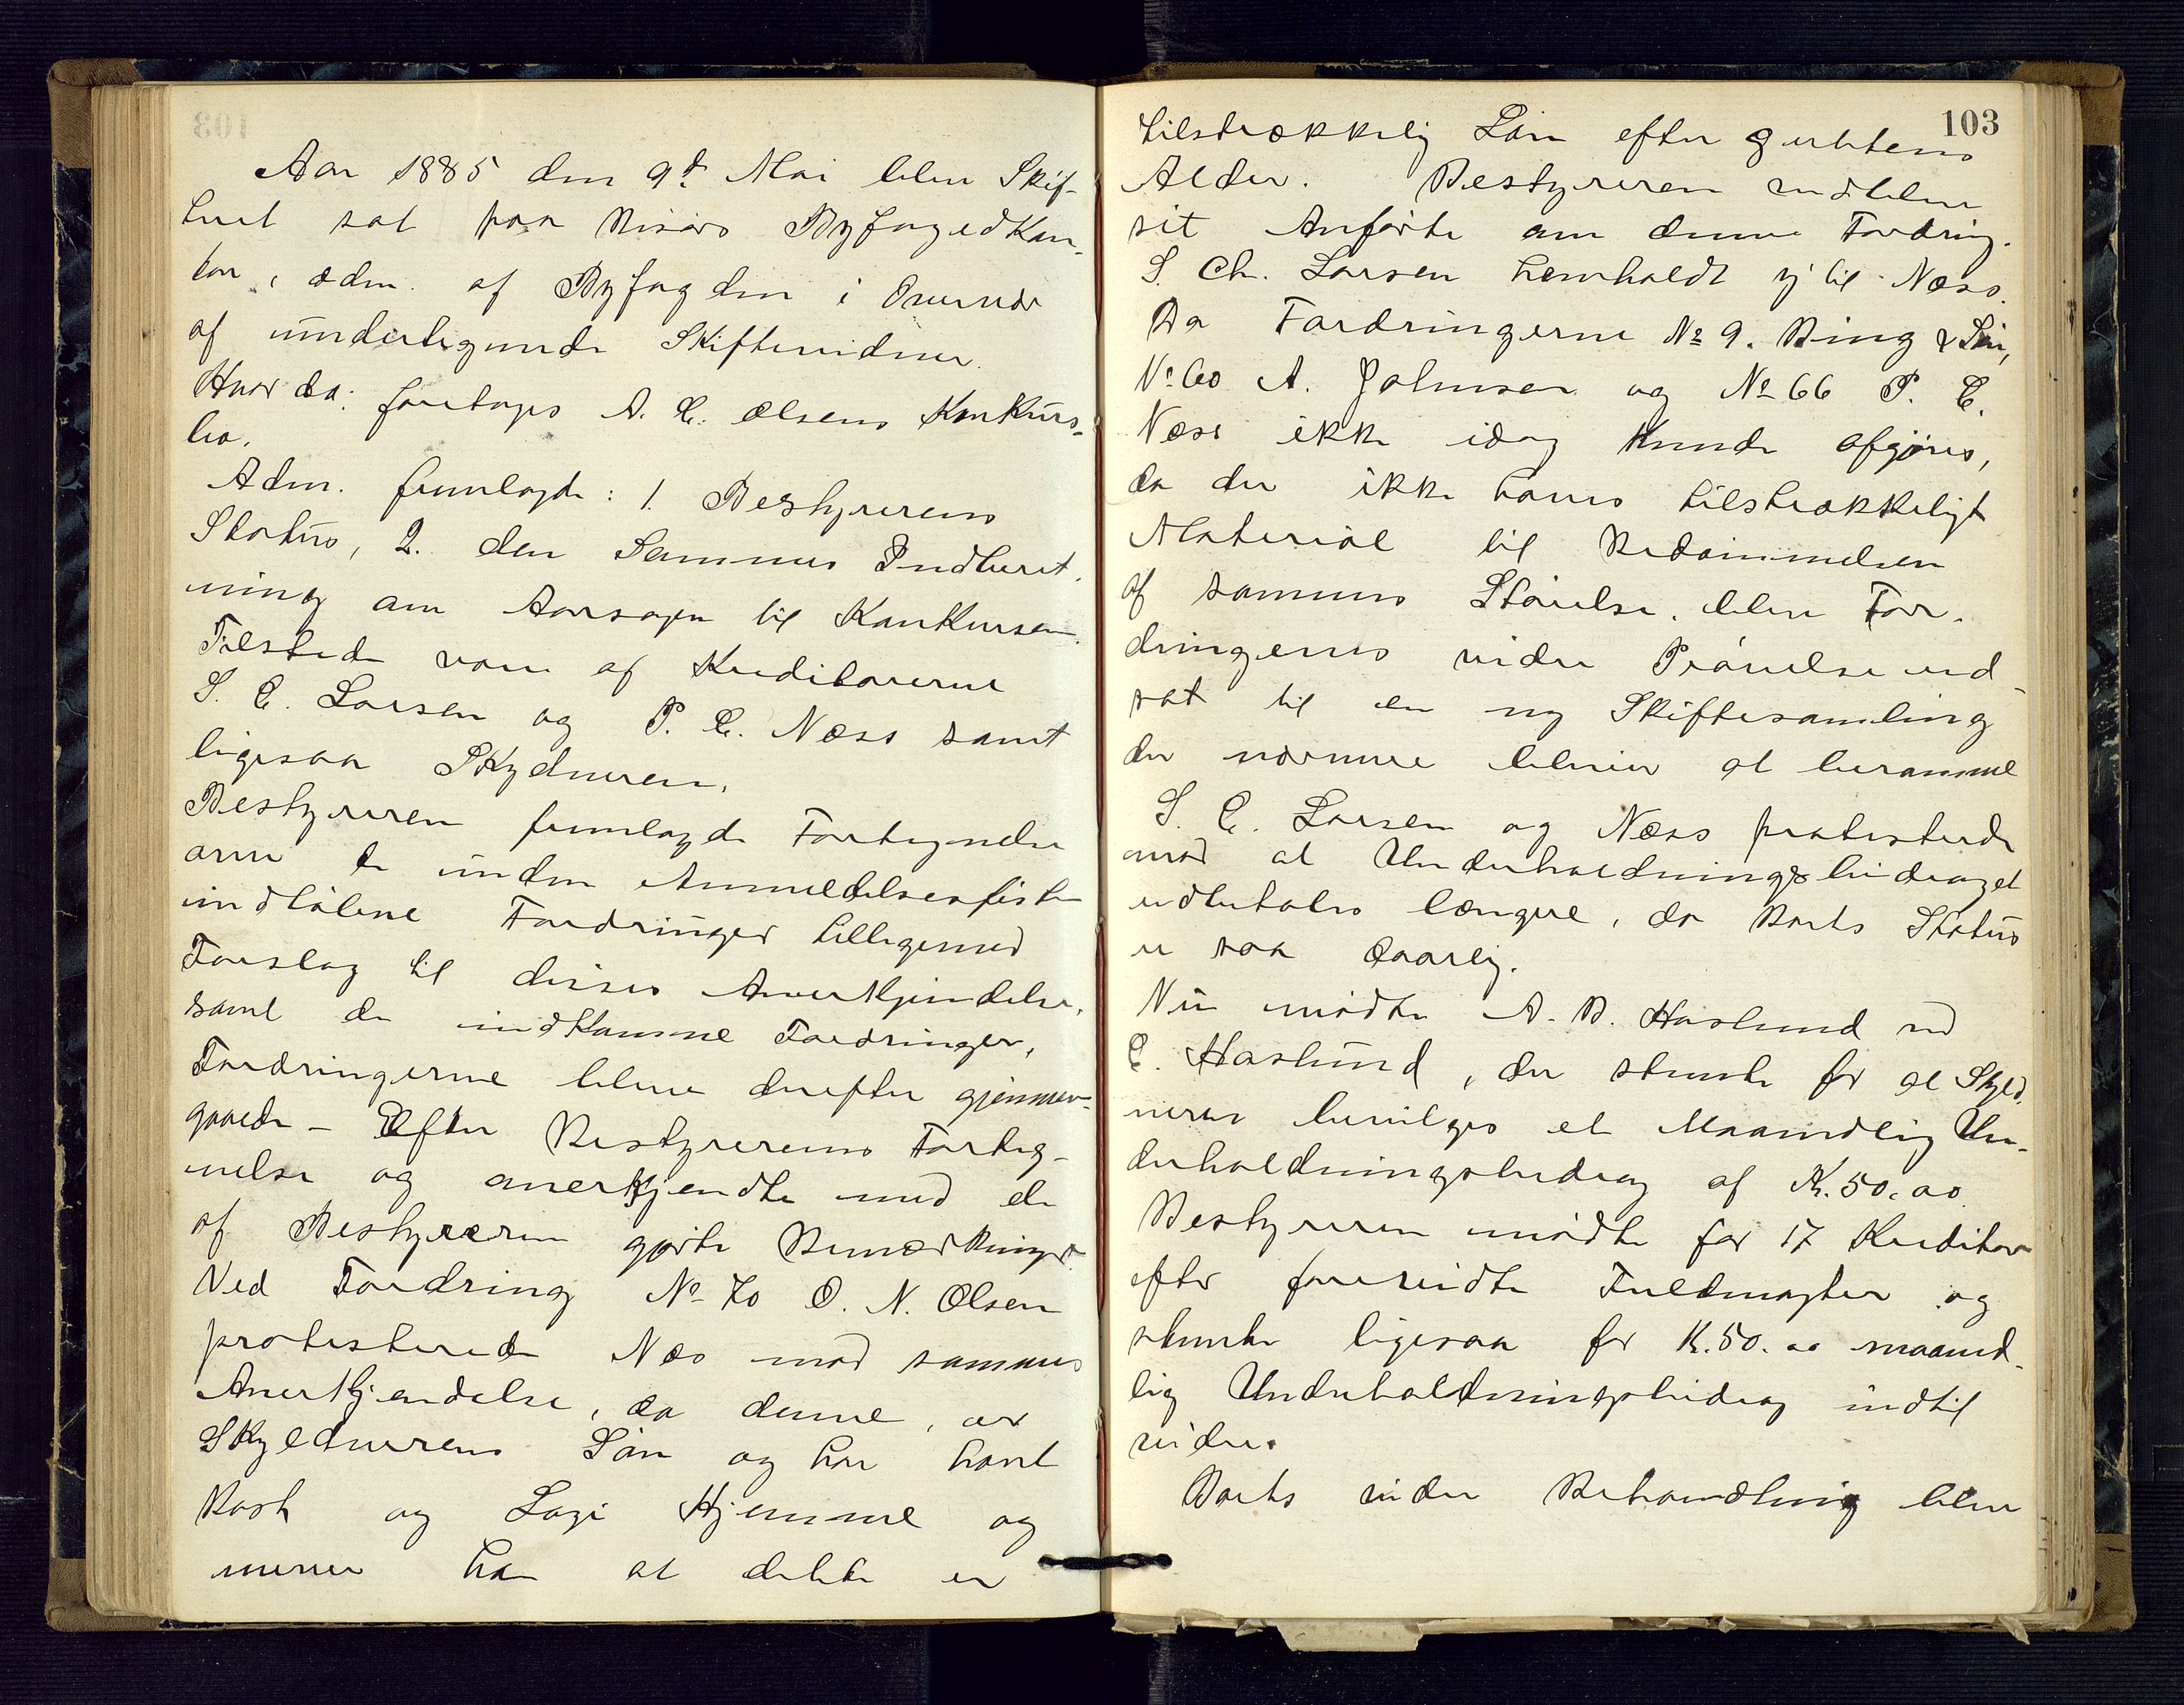 Aar 1885 den 9d. Mai blev Skif-
teret sat paa Risørs Byfogedkon-
tor, adm. af Byfogden i Overvær
af undertegnede Skiftevidner.
Hvor da: foretoges A. C. Olsens Konkurs-
bo.
Adm. fremlagde: 1. Bestyrerens
Status, 2. den Sammes Indberet-
ning om Aarsagen til Konkursen.
Tilstede vare af Kreditorerne
S. C. Larsen og P. C. Næss samt
ligesaa Skyldneren.
Bestyreren fremlagde Fortegnelse
over de inden Anmeldelsesfristen
indløbne Fordringer tilligemed
Forslag til disses Anerkjendelse,
samt de indkomne Fordringer,
Fordringerne bleve derefter gjennem-
gaaede – Efter Bestyrerens Forteg-
nelse og anerkjendte med de
af Bestyreren gjorte Bemærkninger.
Ved Fordring No 70 O. N. Olsen
protesterede Næs mod sammes
Anerkjendelse, da denne, er
Skyldnerens Søn og har havt
Kost og Logi Hjemme og
mener han at dette er
103
tilstrækkelig Løn efter Guttens
Alder. Bestyreren vedblev
sit Anførte om denne Fordring.
S. Ch. Larsen henholdt sig til Næss.
Da Fordringerne No 9. Ring & Søn,
No 60 A. Johnsen og No 66 P. C.
Næss ikke idag kunde afgjøres,
da der ikke haves tilstrækkeligt
Material til Bedømmelsen
af sammes Størrelse, blev For-
dringernes videre Prøvelse ud-
sat til en ny Skiftesamling
der nærmere bliver at beramme
S. C. Larsen og Næss protesterede
mod at Underholdningsbidraget
udbetales længere, da Boets Status
er saa daarlig.
Nu mødte A. B. Haslund ved
C. Haslund, der stemte for at Skyld-
neren bevilges et Maanedlig Un-
derholdningsbidrag af K. 50.00
Bestyreren mødte for 17 Kreditorer
efter foreviste Fuldmagter og
stemte ligesaa for K. 50.00 maaned-
lig Underholdningsbidrag indtil
videre.
Boets videre Behandling blev